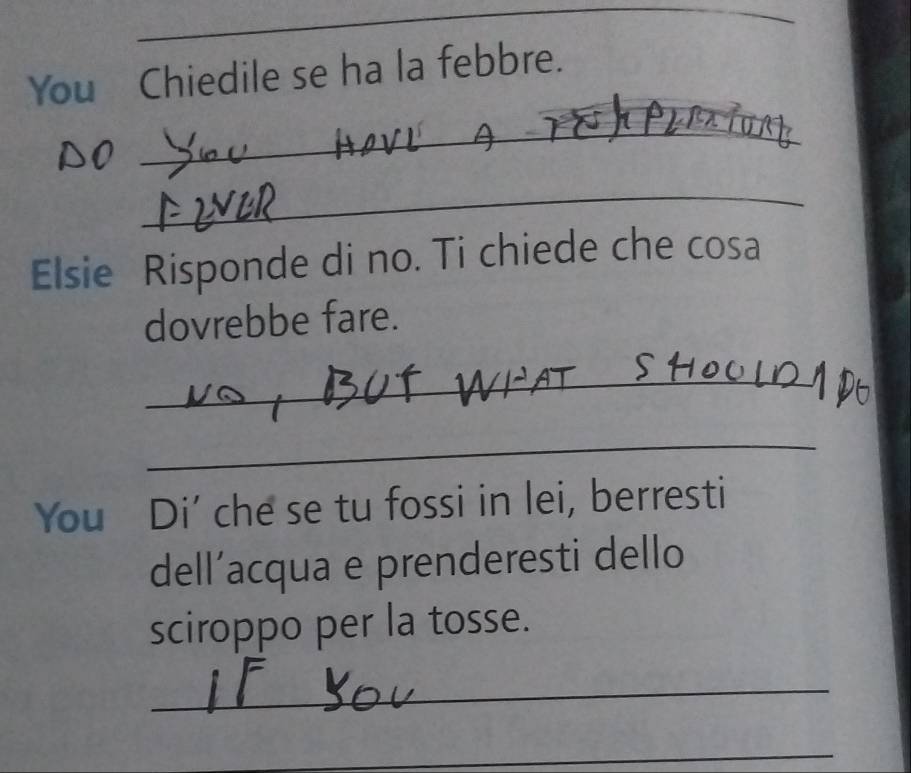 You Chiedile se ha la febbre.
DO You HAVE A TEMPERATURE
FEVER
Elsie Risponde di no. Ti chiede che cosa
dovrebbe fare.
NO, BUT WHAT SHOULD I DO
You Di' che se tu fossi in lei, berresti
dell'acqua e prenderesti dello
sciroppo per la tosse.
IF You